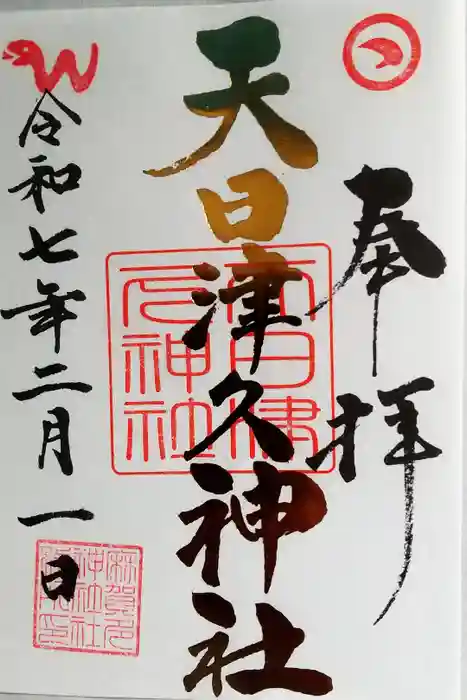 奉拝
天日津久神社
天日津久神社
令和七年二月一日
麻賀多神社